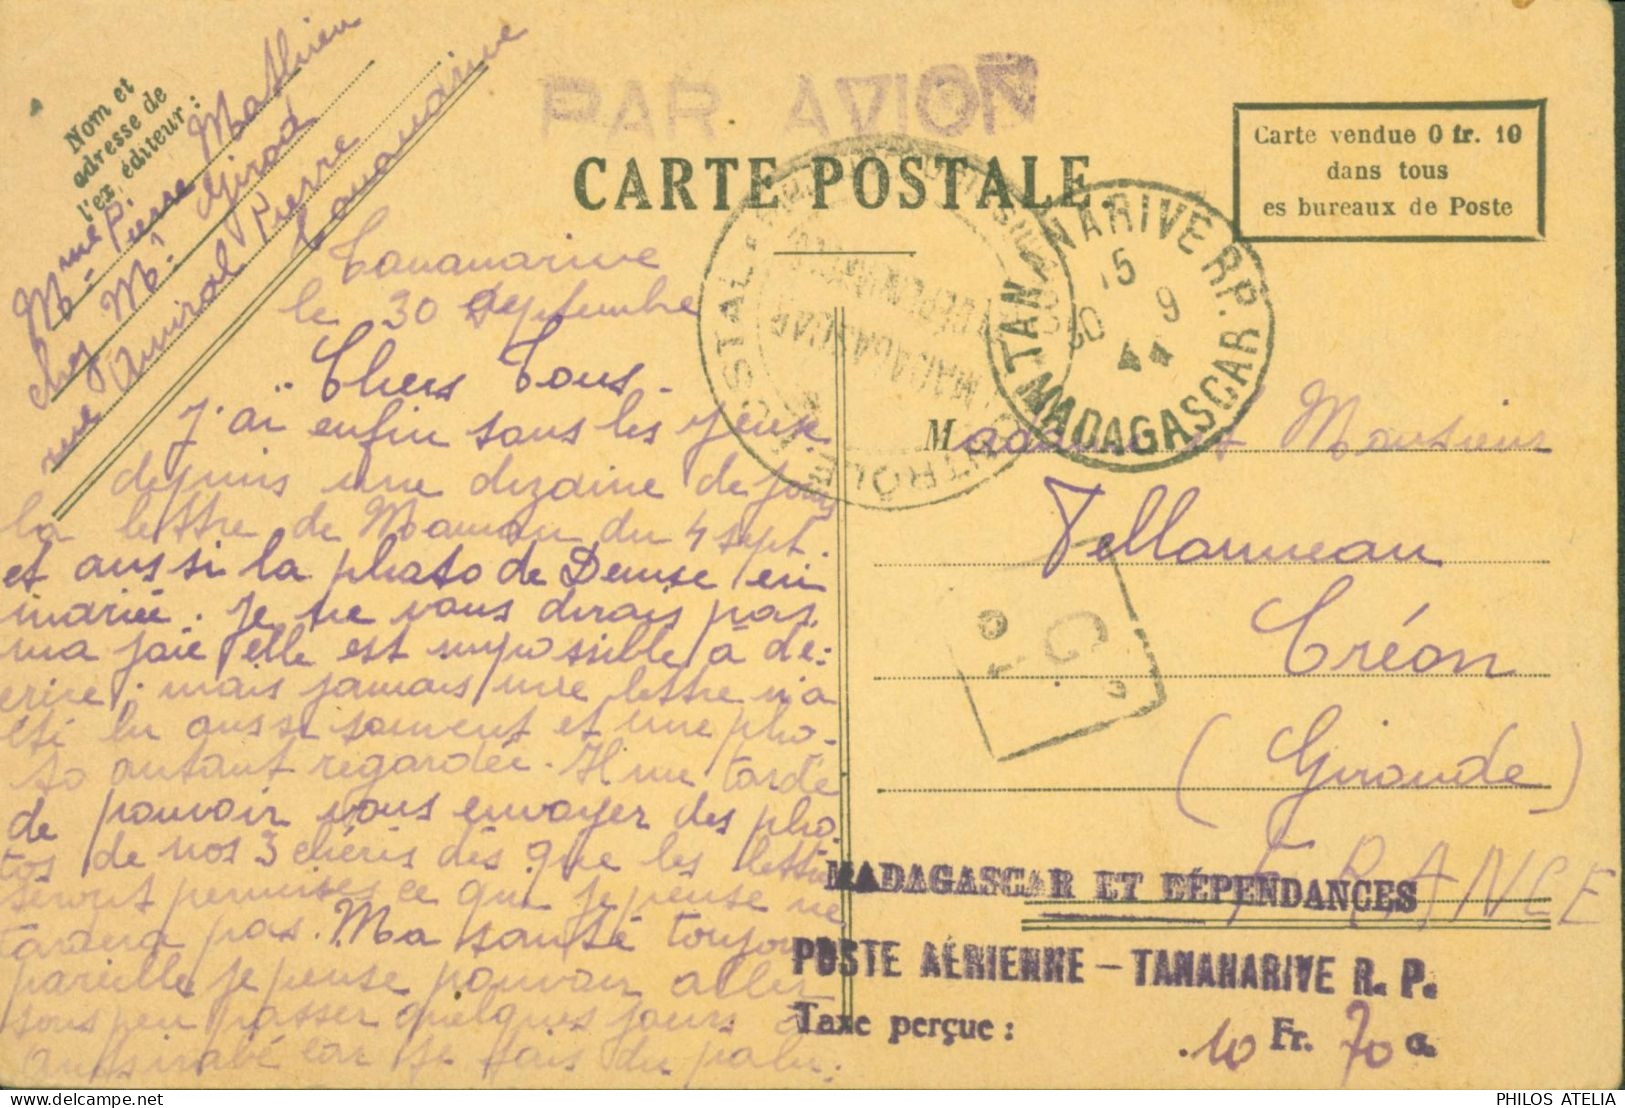 PAR AVION
CARTE POSTALE.
Nom et
adresse de
l'ex. éditeur :
Mme Pierre Mathieu
chez Mr Girod
rue Amiral Pierre
Tananarive
Carte vendue 0 fr. 10
dans tous
es bureaux de Poste
TANANARIVE RP.
15
30 9
44
MADAGASCAR
CONTRÔLE POSTAL
MADAGASCAR
Tananarive
le 30 Septembre
Chers Tous.
J'ai enfin sous les yeux
depuis une dizaine de jours
la lettre de Maman du 4 sept.
et aussi la photo de Denise en
mariée. Je ne vous dirais pas
ma joie elle est impossible à dé-
crire; mais jamais une lettre n'a
été lu aussi souvent et une pho-
to autant regardée. Il me tarde
de pouvoir vous envoyer des pho-
tos de nos 3 chéris dès que les lettres
seront permises ce qui je pense ne
tardera pas. Ma santé toujours
pareille je pense pouvoir aller
sous peu passer quelques jours à
Antsirabé car je fais du palu-
Madame et Monsieur
Tellanneau
Créon
(Gironde)
FRANCE
C
MADAGASCAR ET DÉPENDANCES
POSTE AÉRIENNE – TANANARIVE R. P.
Taxe perçue : 10 Fr. 70 c.
PHILOS ATELIA